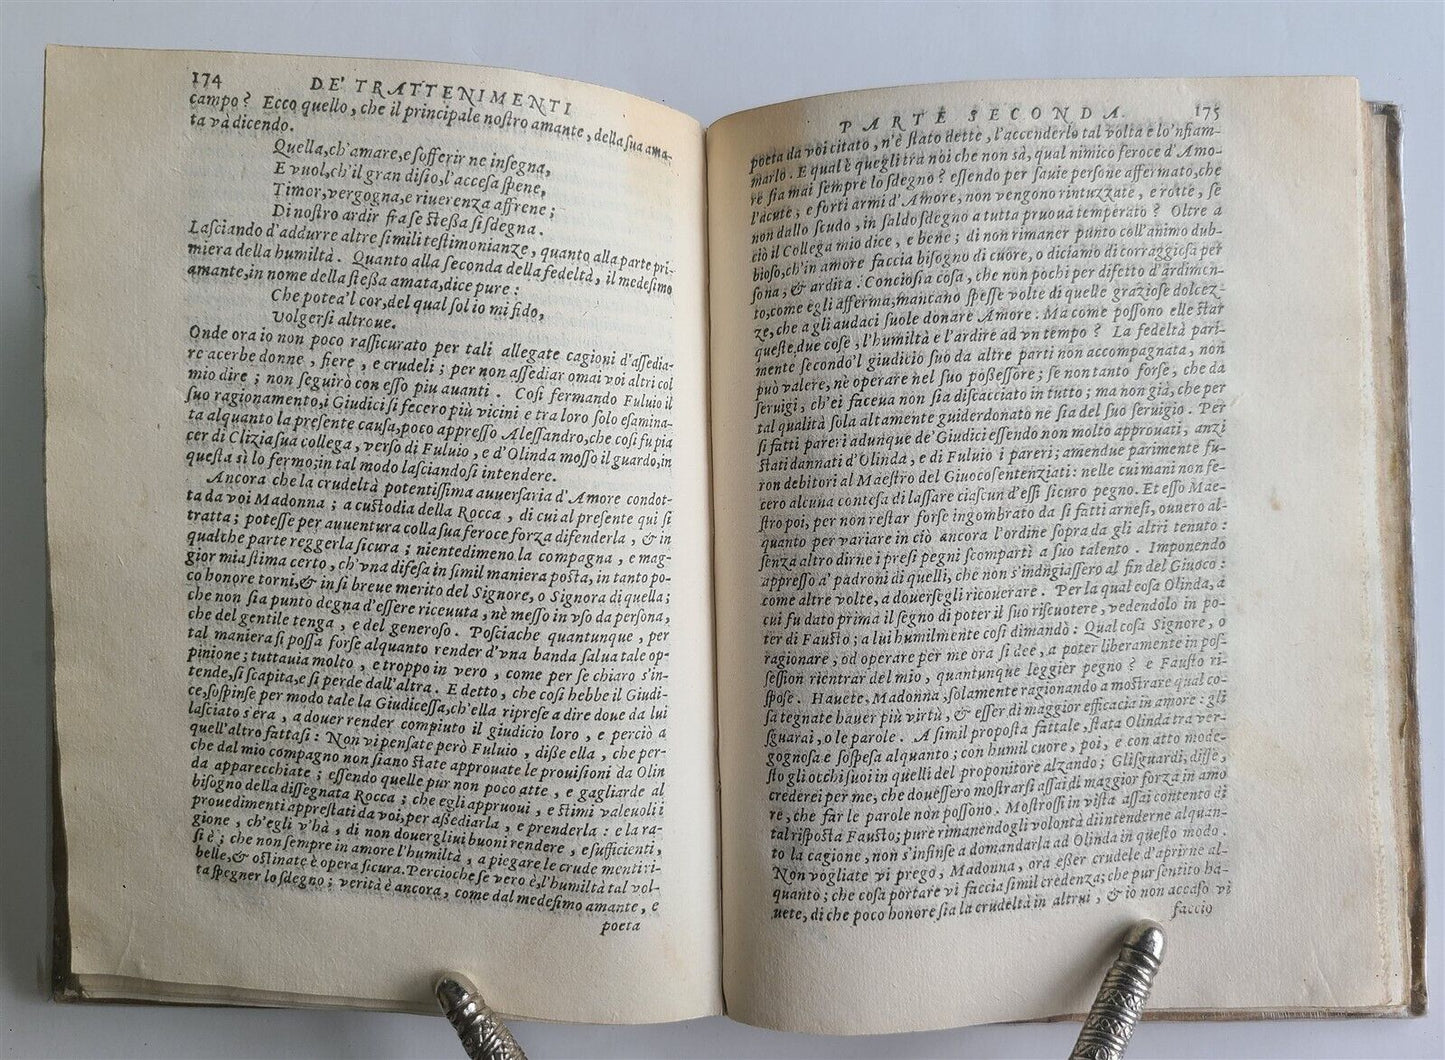 174 DE' TRATTENIMENTI
campo? Ecco quello, che il principale noſtro amante, della ſua ama-
ta và dicendo.
Quella, ch'amare, e ſofferir ne inſegna,
E vuol, ch'il gran diſio, l'acceſa ſpene,
Timor, vergogna, e riuerenza affrene;
Di noſtro ardir fra ſe ſteßa ſi ſdegna.
Laſciando d'addurre altre ſimili teſtimonianze, quanto alla parte pri-
miera della humiltà. Quanto alla ſeconda della fedeltà, il medeſimo
amante, in nome della ſteßa amata, dice pure:
Che potea'l cor, del qual ſol io mi fido,
Volgerſi altroue.
Onde ora io non poco raſſicurato per tali allegate cagioni d'aſſedia-
re acerbe donne, fiere, e crudeli; per non aſſediar omai voi altri col
mio dire; non ſeguirò con eſſo piu auanti. Coſi fermando Fuluio il
ſuo ragionamento, i Giudici ſi fecero più vicini e tra loro ſolo eſamina-
ta alquanto la preſente cauſa, poco appreſſo Aleſſandro, che coſi fu pia
cer di Clizia ſua collega, verſo di Fuluio, e d'Olinda moſſo il guardo, in
queſta sì lo fermo; in tal modo laſciandoſi intendere.
Ancora che la crudeltà potentiſſima auuerſaria d'Amore condot-
ta da voi Madonna; a cuſtodia della Rocca, di cui al preſente qui ſi
tratta; poteſſe per auuentura colla ſua feroce forza difenderla, & in
qualche parte reggerla ſicura; nientedimeno la compagna, e mag-
gior mia ſtima certo, ch'vna difeſa in ſimil maniera poſta, in tanto po-
co honore torni, & in ſi breue merito del Signore, o Signora di quella;
che non ſia punto degna d'eſſere riceuuta, nè meſſo in vſo da perſona,
che del gentile tenga, e del generoſo. Poſciache quantunque, per
tal maniera ſi poſſa forſe alquanto render d'vna banda ſalua tale op-
pinione; tuttauia molto, e troppo in vero, come per ſe chiaro s'in-
tende, ſi ſcapita, e ſi perde dall'altra. E detto, che coſi hebbe il Giudi-
ce, ſoſpinſe per modo tale la Giudiceſſa, ch'ella ripreſe a dire doue da lui
laſciato s'era, a douer render compiuto il giudicio loro, e perciò a
quell'altro fattaſi: Non vi penſate però Fuluio, diße ella, che per-
che dal mio compagno non ſiano ſtate approuate le prouiſioni da Olin
da apparecchiate; eſſendo quelle pur non poco atte, e gagliarde al
biſogno della diſſegnata Rocca; che egli appruoui, e ſtimi valeuoli i
prouedimenti appreſtati da voi, per aßediarla, e prenderla: e la ra-
gione, ch'egli v'hà, di non douergliui buoni rendere, e ſufficienti,
ſi è; che non ſempre in amore l'humiltà, a piegare le crude menti ri-
belle, & oſtinate è opera ſicura. Percioche ſe vero è, l'humiltà tal vol-
ta ſpegner lo ſdegno; verità è ancora, come dal medeſimo amante, e
poeta
PARTE SECONDA. 175
poeta da voi citato, n'è ſtato dette, l'accenderlo tal volta e lo'nfiam-
marlo. E qual è quegli tra noi che non sà, qual nimico feroce d'Amo-
re ſia mai ſempre lo ſdegno? eſſendo per ſauie perſone affermato, che
l'acute, e forti armi d'Amore, non vengono rintuzzate, e rotte, ſe
non dallo ſcudo, in ſaldo ſdegno a tutta pruoua temperato? Oltre a
ciò il Collega mio dice, e bene; di non rimaner punto coll'animo dub-
bioſo, ch'in amore faccia biſogno di cuore, o diciamo di corraggioſa per
ſona, & ardita. Concioſia coſa, che non pochi per difetto d'ardimen-
to, come egli afferma, mancano ſpeſſe volte di quelle grazioſe dolcez-
ze, che a gli audaci ſuole donare Amore. Ma come poſſono elle ſtar
queſte due coſe, l'humiltà e l'ardire ad vn tempo? La fedeltà pari-
mente ſecondo'l giudicio ſuo da altre parti non accompagnata, non
può valere, nè operare nel ſuo poßeſſore; ſe non tanto forſe, che da
ſeruigi, ch'ei faceua non ſia diſcacciato in tutto; ma non già, che per
tal qualità ſola altamente guiderdonato ne ſia del ſuo ſeruigio. Per
ſi fatti pareri adunque de' Giudici eſſendo non molto approuati, anzi
ſtati dannati d'Olinda, e di Fuluio i pareri; amendue parimente fu-
ron debitori al Maeſtro del Giuoco ſentenziati: nelle cui mani non fe-
cero alcuna conteſa di laſſare ciaſcun d'eſſi ſicuro pegno. Et eſſo Mae-
ſtro poi, per non reſtar forſe ingombrato da ſi fatti arneſi, ouuero al-
quanto per variare in ciò ancora l'ordine ſopra da gli altri tenuto:
ſenza altro dirne i preſi pegni ſcompartì a ſuo talento. Imponendo
appreſſo a' padroni di quelli, che non s'indugiaſſero al fin del Giuoco:
come altre volte, a douerſegli ricouerare. Per la qual coſa Olinda, a
cui fu dato prima il ſegno di poter il ſuo riſcuotere, vedendolo in po-
ter di Fauſto; a lui humilmente coſi dimandò: Qual coſa Signore, o
ragionare, od operare per me ora ſi dee, a poter liberamente in poſ-
ſeſſion rientrar del mio, quantunque leggier pegno? e Fauſto ri-
ſpoſe. Hauete, Madonna, ſolamente ragionando a moſtrare qual co-
ſa tegnate hauer più virtù, & eſſer di maggior efficacia in amore: gli
ſguarai, o le parole. A ſimil propoſta fattale, ſtata Olinda tra ver-
gognoſa e ſoſpeſa alquanto; con humil cuore, poi, e con atto mode-
ſto gli occhi ſuoi in quelli del proponitore alzando; Gli ſguardi, diſſe,
crederei per me, che doueſſero moſtrarſi aſſai di maggior forza in amo
re, che far le parole non poſſono. Moſtroſſi in viſta aſſai contento di
tal riſpoſta Fauſto; pure rimanendogli volontà d'intenderne alquan-
to la cagione, non s'infinſe a domandarla ad Olinda in queſto modo.
Non vogliate vi prego, Madonna, ora eßer crudele d'aprirne al-
quanto; che coſa portare vi faccia ſimil credenza; che pur ſentito ha-
uete, di che poco honore ſia la crudeltà in altrui, & io non accaſo vi
faccio